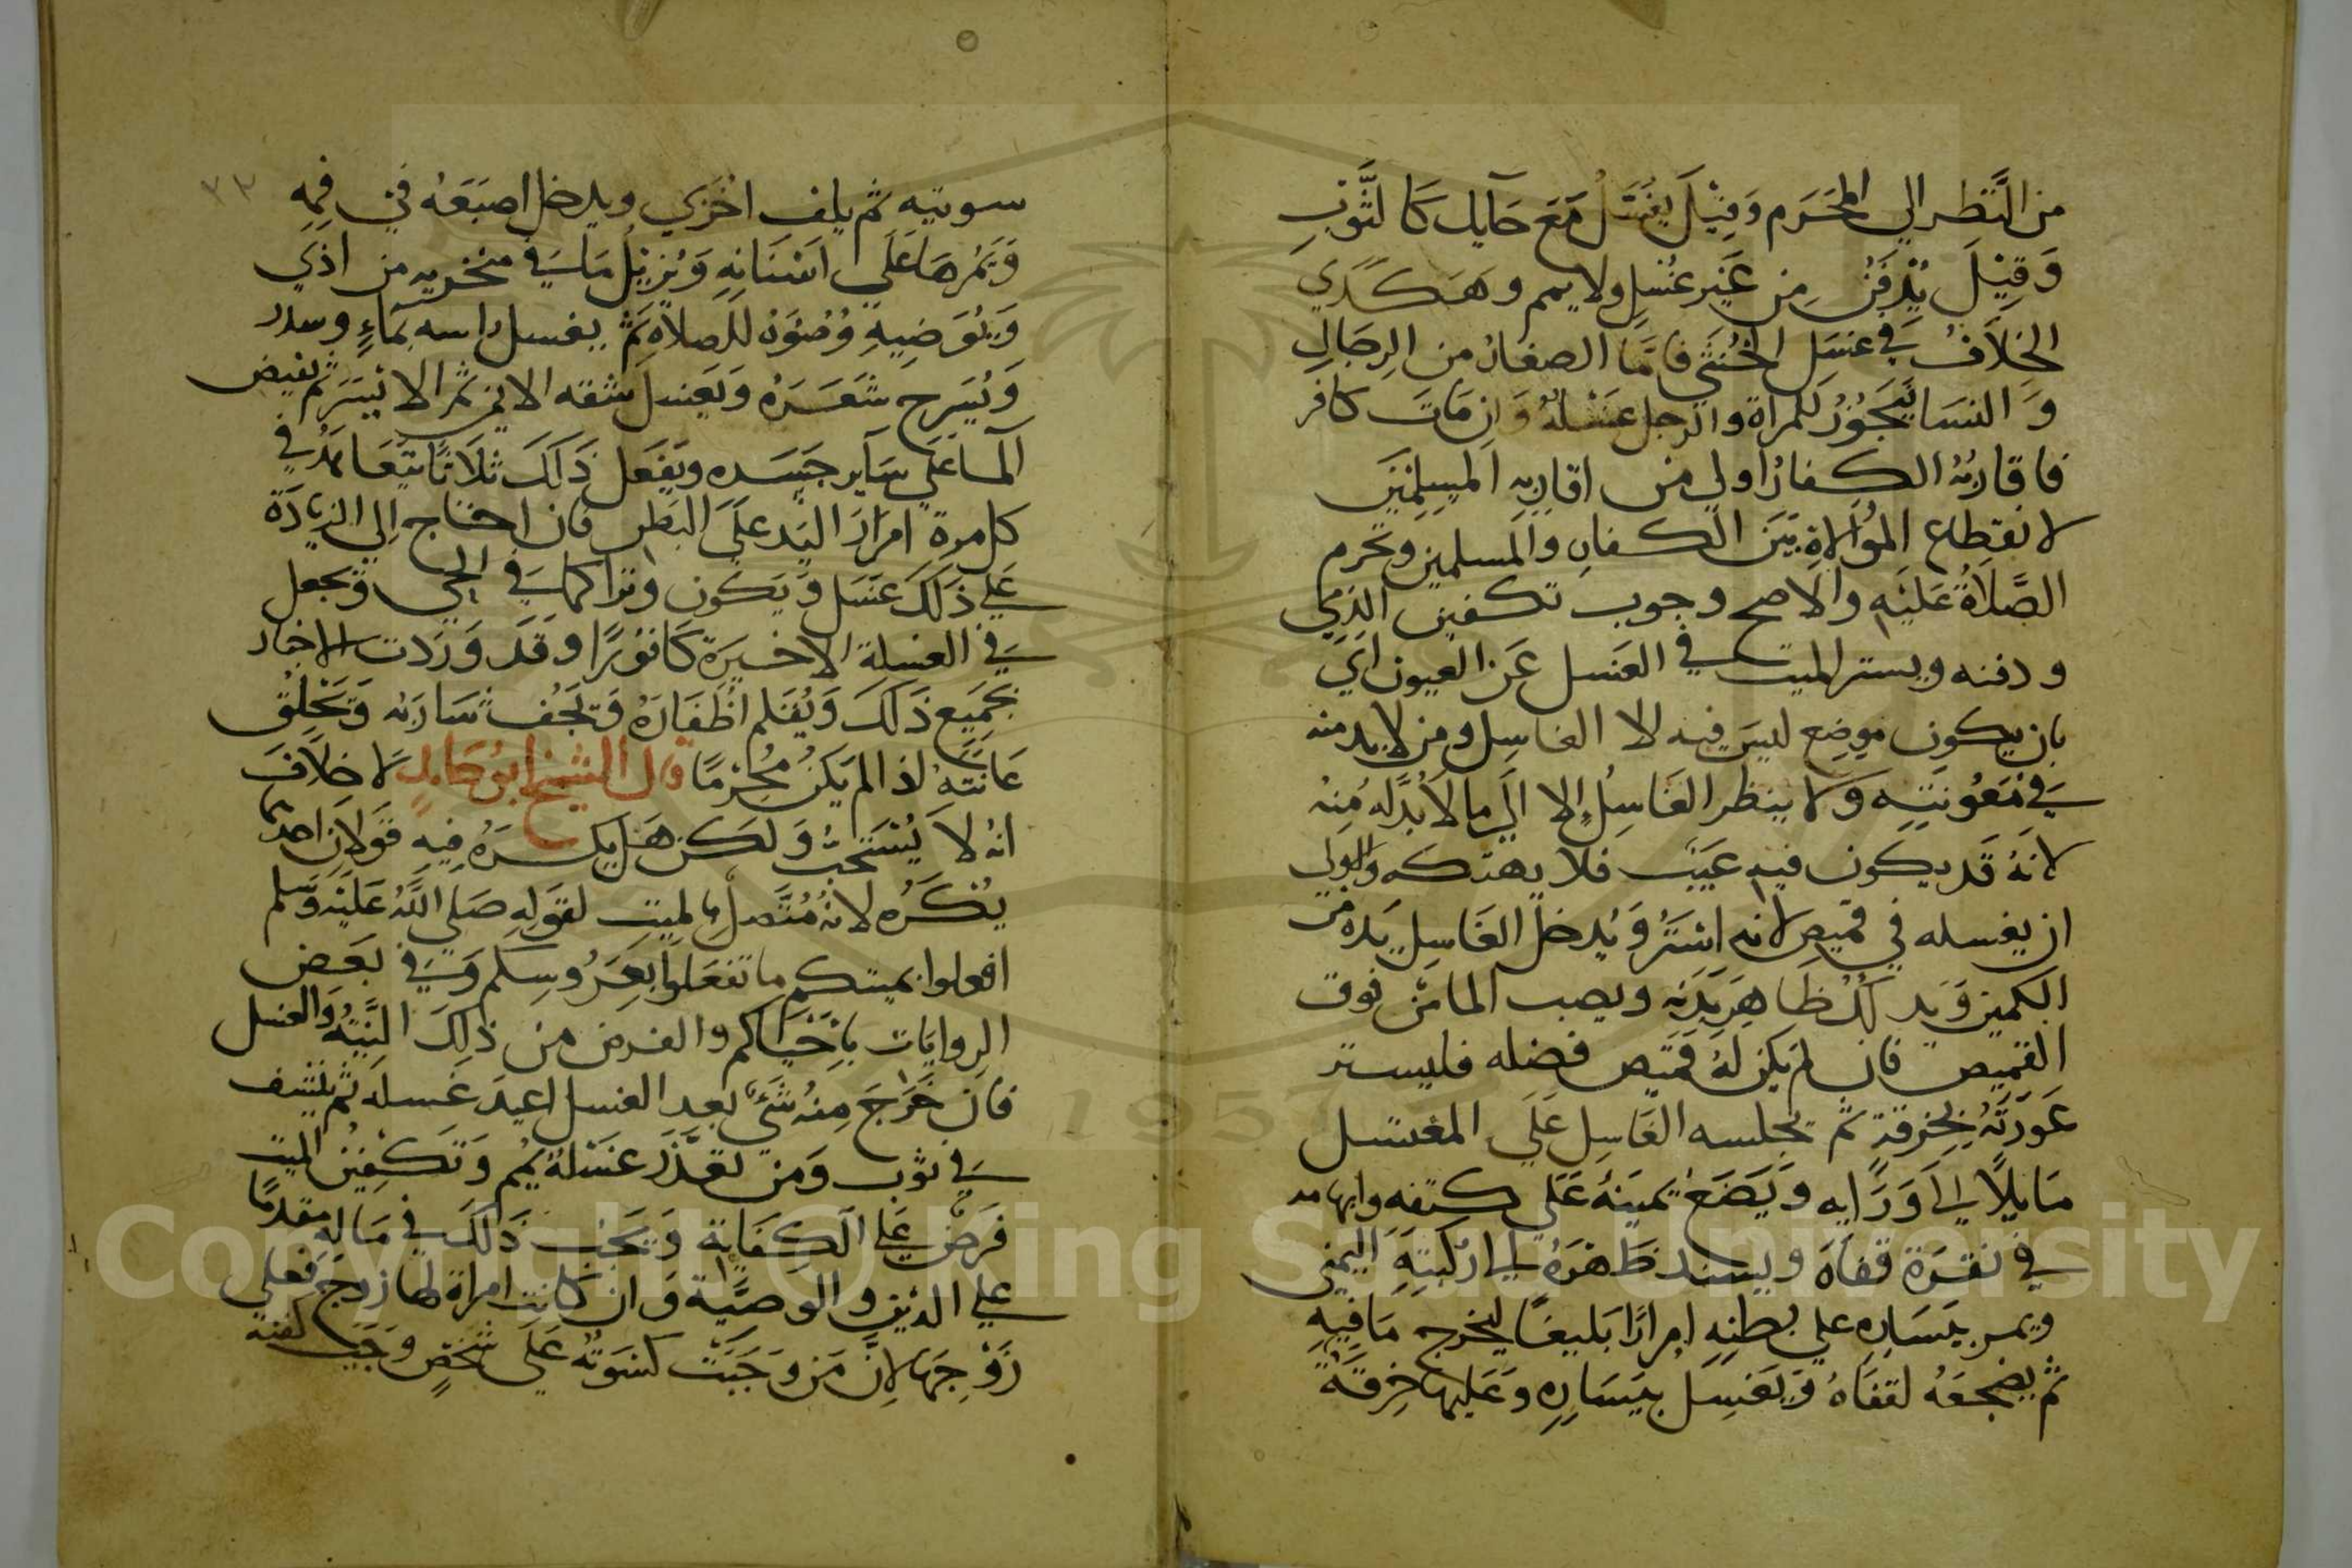 من النظر الي المحرم وقيل يغسل مع حايل كالثوب
وقيل يدفن من غير غسل ولا ييمم وهكذي
الخلاف في غسل الخنثي فاما الصغار من الرجال
والنسا يجوز للمراة والرجل غسله وان مات كافر
فاقاربه الكفار اولي من اقاربه المسلمين
لانقطاع الموالاة بين الكفار والمسلمين وتحرم
الصلاة عليه والاصح وجوب تكفين الذمي
ودفنه ويستر الميت في الغسل عن العيون اي
بان يكون موضع ليس فيه الا الغاسل ومن لا بد منه
في معونته ولا ينظر الغاسل الا الي ما لا بد له منه
لانه قد يكون فيه عيب فلا يهتكه والاولي
ان يغسله في قميص لانه استر ويدخل الغاسل يده من
الكمين ويدلك ظاهر بدنه ويصب الما من فوق
القميص فان لم يكن له قميص فضله فليستر
عورته بخرقة ثم يجلسه الغاسل علي المغتسل
مايلا الي ورايه ويضع يمينه علي كتفه وابهامه
في نقرة قفاه ويسند ظهره الي اركبته اليمني
ويمر بيساره علي بطنه امرارا بليغا ليخرج ما فيه
ثم يضجعه لقفاه ويغسل بيساره وعليها خرقة
٣٣
سوتيه ثم يلف اخري ويدخل اصبعه في فمه
ويمرها علي اسنانه ويزيل ما في منخريه من اذي
ويوضيه وضوه للصلاة ثم يغسل راسه بماء وسدر
ويسرح شعره ويغسل شقه الايمن ثم الايسر ثم يفيض
الما علي ساير جسده ويفعل ذلك ثلاثا يتعاهد في
كل مرة امرار اليد علي البطن فان احتاج الي الزيادة
علي ذلك غسل ويكون وترا كما في الحي ويجعل
في الغسلة الاخيرة كافورا وقد وردت الاخبار
بجميع ذلك ويقلم اظفاره ويحف شاربه ويحلق
عانته اذا لم يكن محرما قال الشيخ ابو حامد لا خلاف
انه لا يستحب ولكن هل يكره فيه قولان احدهما
يكره لانه متصل بالميت لقوله صلي الله عليه وسلم
افعلوا بميتكم ما تفعلوا بعروسكم وفي بعض
الروايات باحياكم والفرض من ذلك النية والغسل
فان خرج منه شي بعد الغسل اعيد غسله ثم ينشف
في ثوب ومن تعذر غسله يمم وتكفين الميت
فرض علي الكفاية ويجب ذلك في ماله مقدما
علي الدين والوصية وان كانت امراة لها زوج فعلي
زوجها لان من وجبت كسوته علي شخص وجب كفنه
Copyright © King Saud University
1957